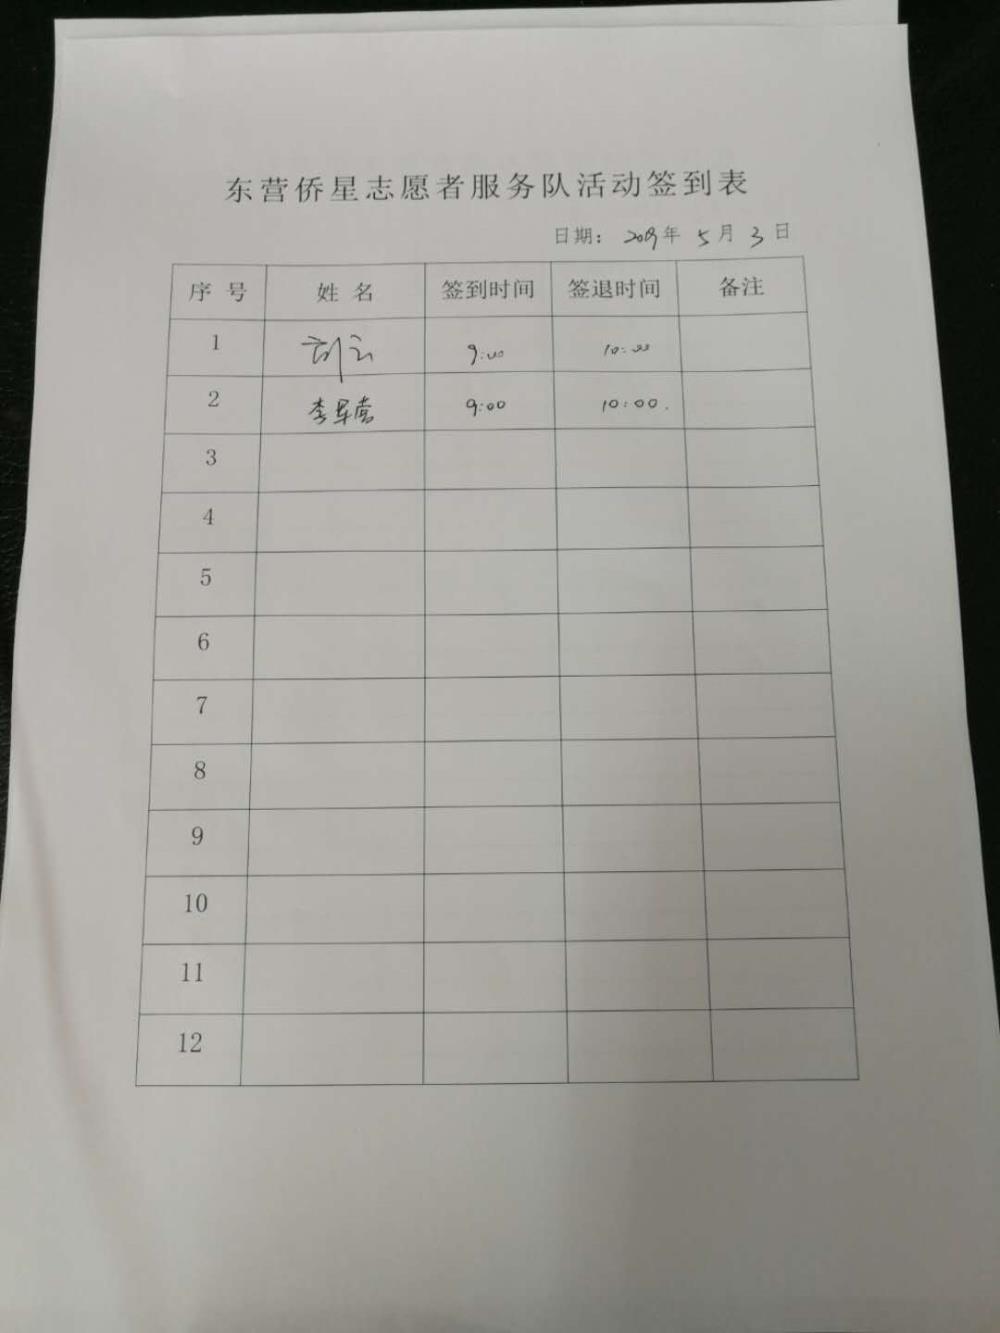 东营侨星志愿者服务队活动签到表
日期： 2019年 5月 3日
序号 姓名 签到时间 签退时间 备注
1 刘云 9:00 10:00
2 李 9:00 10:00.
3
4
5
6
7
8
9
10
11
12